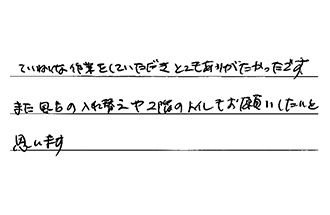 ていねいな作業をしていただきとてもありがたかったです
また畳の入れ替えや2階のトイレもお願いしたいと
思います